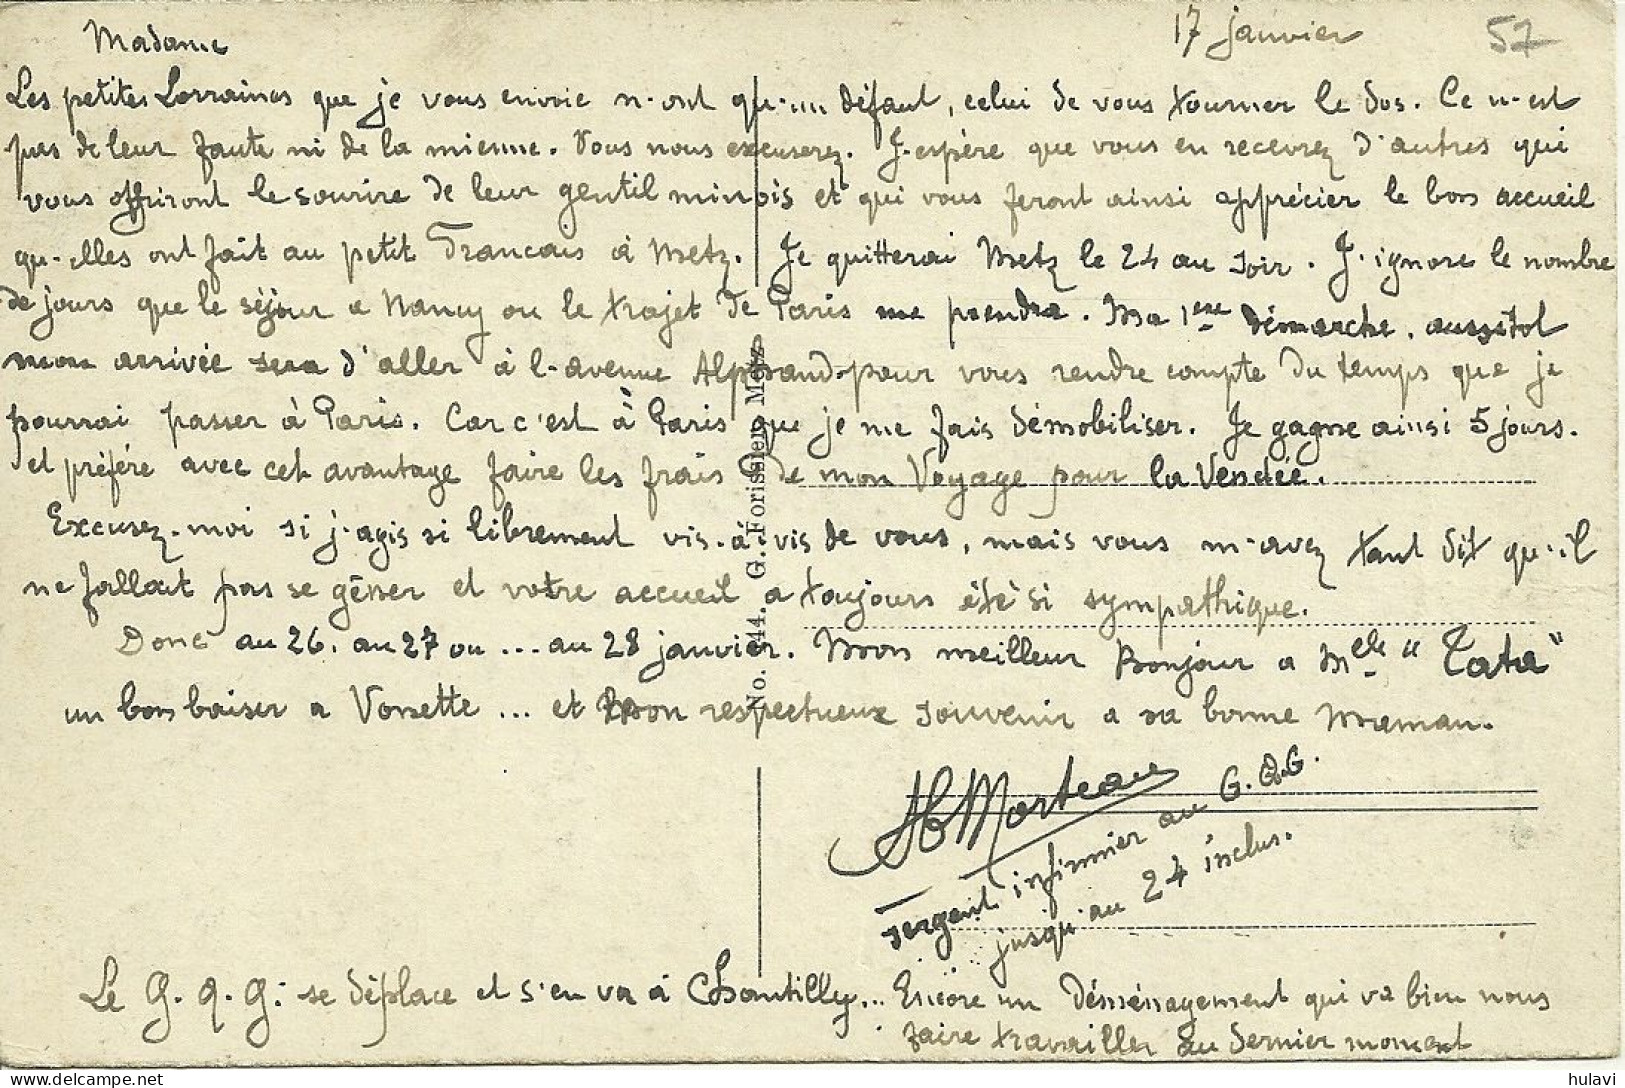 17 janvier
57
Madame
Les petites Lorraines que je vous envoie n'ont qu'un défaut, celui de vous tourner le dos. Ce n'est
pas de leur faute ni de la mienne. Vous nous excuserez. J'espère que vous en recevrez d'autres qui
vous offriront le sourire de leur gentil minois et qui vous feront ainsi apprécier le bon accueil
qu'elles ont fait au petit Francais à Metz. Je quitterai Metz le 24 au soir. J'ignore le nombre
de jours que le séjour a Nancy ou le trajet de Paris me prendra. Ma 1ere démarche, aussitot
mon arrivée sera d'aller à l'avenue Alphand pour vous rendre compte du temps que je
pourrai passer à Paris. Car c'est à Paris que je me fais démobiliser. Je gagne ainsi 5 jours.
et préfère avec cet avantage faire les frais de mon Voyage pour la Vendée.
Excusez-moi si j'agis si librement vis-à-vis de vous, mais vous m'avez tant dit qu'il
ne fallait pas se gêner et votre accueil a toujours été si sympathique.
Donc au 26. au 27 ou ... au 28 janvier. Mon meilleur Bonjour a Melle "Tata"
un bon baiser a Vonette ... et mon respectueux souvenir a sa bonne Maman.
Morteau
sergent infirmier au G.Q.G.
jusqu'au 24 inclus.
Le G.Q.G: se déplace et s'en va à Chantilly... Encore un Déménagement qui va bien nous
faire travailler au dernier moment
No. 44. G. Forissier, Metz
hulavi